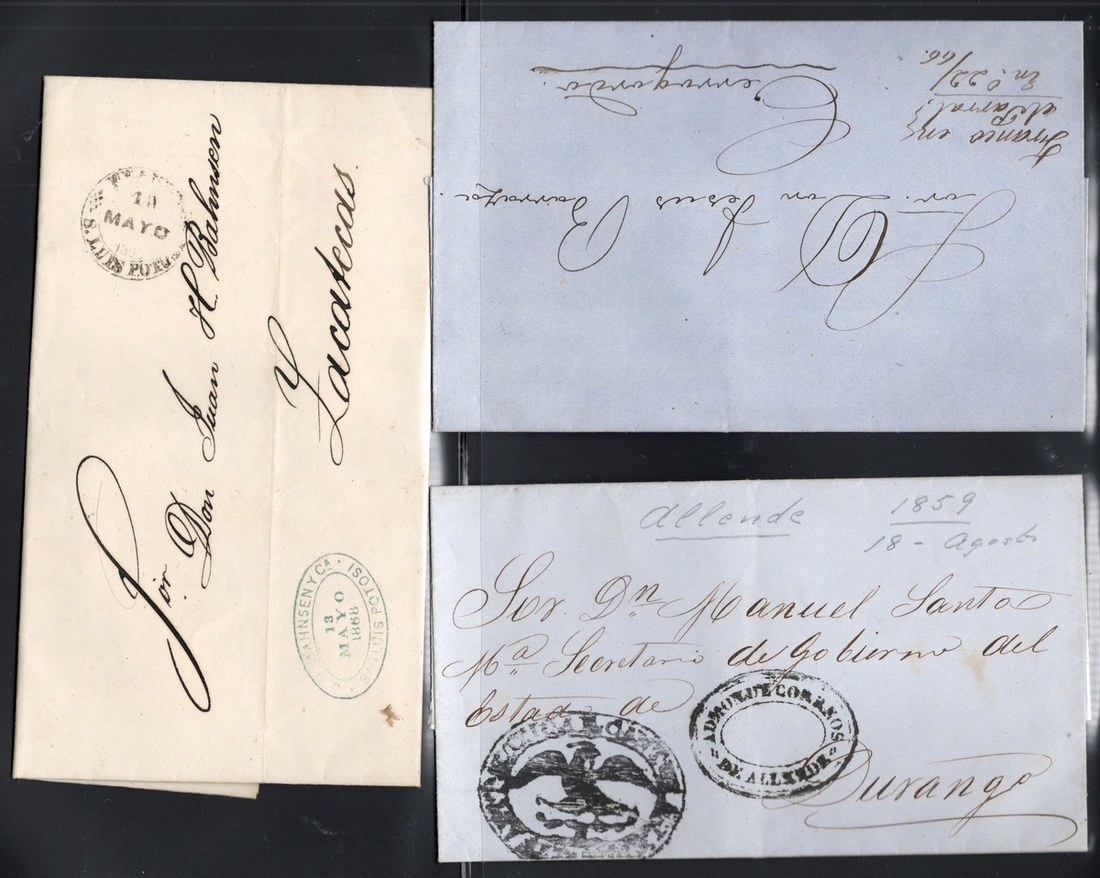 13
MAYO
S. LUIS POTOSI
Sor. Don Juan H Bahnsen
Zacatecas.
BAHNSEN Y CA.
13
MAYO
1868
S. LUIS POTOSI
Sor. Don Jesus Barraza.
Cerrogordo.
Franco en
el Parral
En.o 22/
66.
Allende 1859
18 - Agosto
Sor. Dn Manuel Santa
Ma. Secretario de Gobierno del
Estado de
Durango
ADMON DE CORREOS
DE ALLENDE